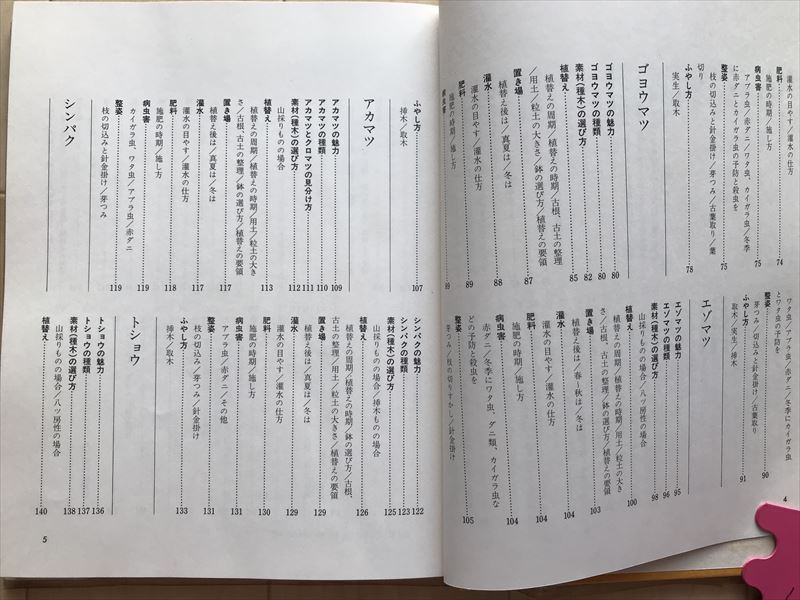 灌水の目やす/灌水の仕方
肥料……74
施肥の時期/施し方
病虫害……75
アブラ虫/赤ダニ/ワタ虫、カイガラ虫/冬季
に赤ダニとカイガラ虫の予防と殺虫を
整姿……75
枝の切込みと針金掛け/芽つみ/古葉取り/葉
切り
ふやし方……78
実生/取木
ゴヨウマツ
ゴヨウマツの魅力……80
ゴヨウマツの種類……80
素材(種木)の選び方……82
植替え……85
植替えの周期/植替えの時期/古根、古土の整理
/用土/粒土の大きさ/鉢の選び方/植替えの要領
置き場……87
植替え後は/真夏は/冬は
灌水……88
灌水の目やす/灌水の仕方
肥料……89
施肥の時期/施し方
病虫害……89
ワタ虫/アブラ虫/赤ダニ/冬季にカイガラ虫
とワタ虫の予防を
整姿……90
芽つみ/枝の切込みと針金掛け/古葉取り
ふやし方……91
取木/実生/挿木
エゾマツ
エゾマツの魅力……95
エゾマツの種類……96
素材(種木)の選び方……98
山採りものの場合/八ッ房性の場合
植替え……100
植替えの周期/植替えの時期/用土/粒土の大き
さ/古根、古土の整理/鉢の選び方/植替えの要領
置き場……103
植替え後は/春〜秋は/冬は
灌水……104
灌水の目やす/灌水の仕方
肥料……104
施肥の時期/施し方
病虫害……104
赤ダニ/冬季にワタ虫、ダニ類、カイガラ虫な
どの予防と殺虫を
整姿……105
芽つみ/枝の切りすかし/針金掛け
4
ふやし方……107
挿木/取木
アカマツ
アカマツの魅力……109
アカマツの種類……110
アカマツとクロマツの見分け方……111
素材(種木)の選び方……112
山採りものの場合
植替え……113
植替えの周期/植替えの時期/用土/粒土の大き
さ/古根、古土の整理/鉢の選び方/植替えの要領
置き場……117
植替え後は/真夏は/冬は
灌水……117
灌水の目やす/灌水の仕方
肥料……118
施肥の時期/施し方
病虫害……119
カイガラ虫、ワタ虫/アブラ虫/赤ダニ
整姿……119
枝の切込みと針金掛け/芽つみ
シンパク
シンパクの魅力……122
シンパクの種類……123
素材(種木)の選び方……125
山採りものの場合/挿木ものの場合
植替え……126
植替えの周期/植替えの時期/鉢の選び方/古根、
古土の整理/用土/粒土の大きさ/植替えの要領
置き場……129
植替え後は/真夏は/冬は
灌水……129
灌水の目やす/灌水の仕方
肥料……130
施肥の時期/施し方
病虫害……131
アブラ虫/赤ダニ/その他
整姿……131
枝の切込み/芽つみ/針金掛け
ふやし方……133
挿木/取木
トショウ
トショウの魅力……136
トショウの種類……137
素材(種木)の選び方……138
山採りものの場合/八ッ房性の場合
植替え……140
5